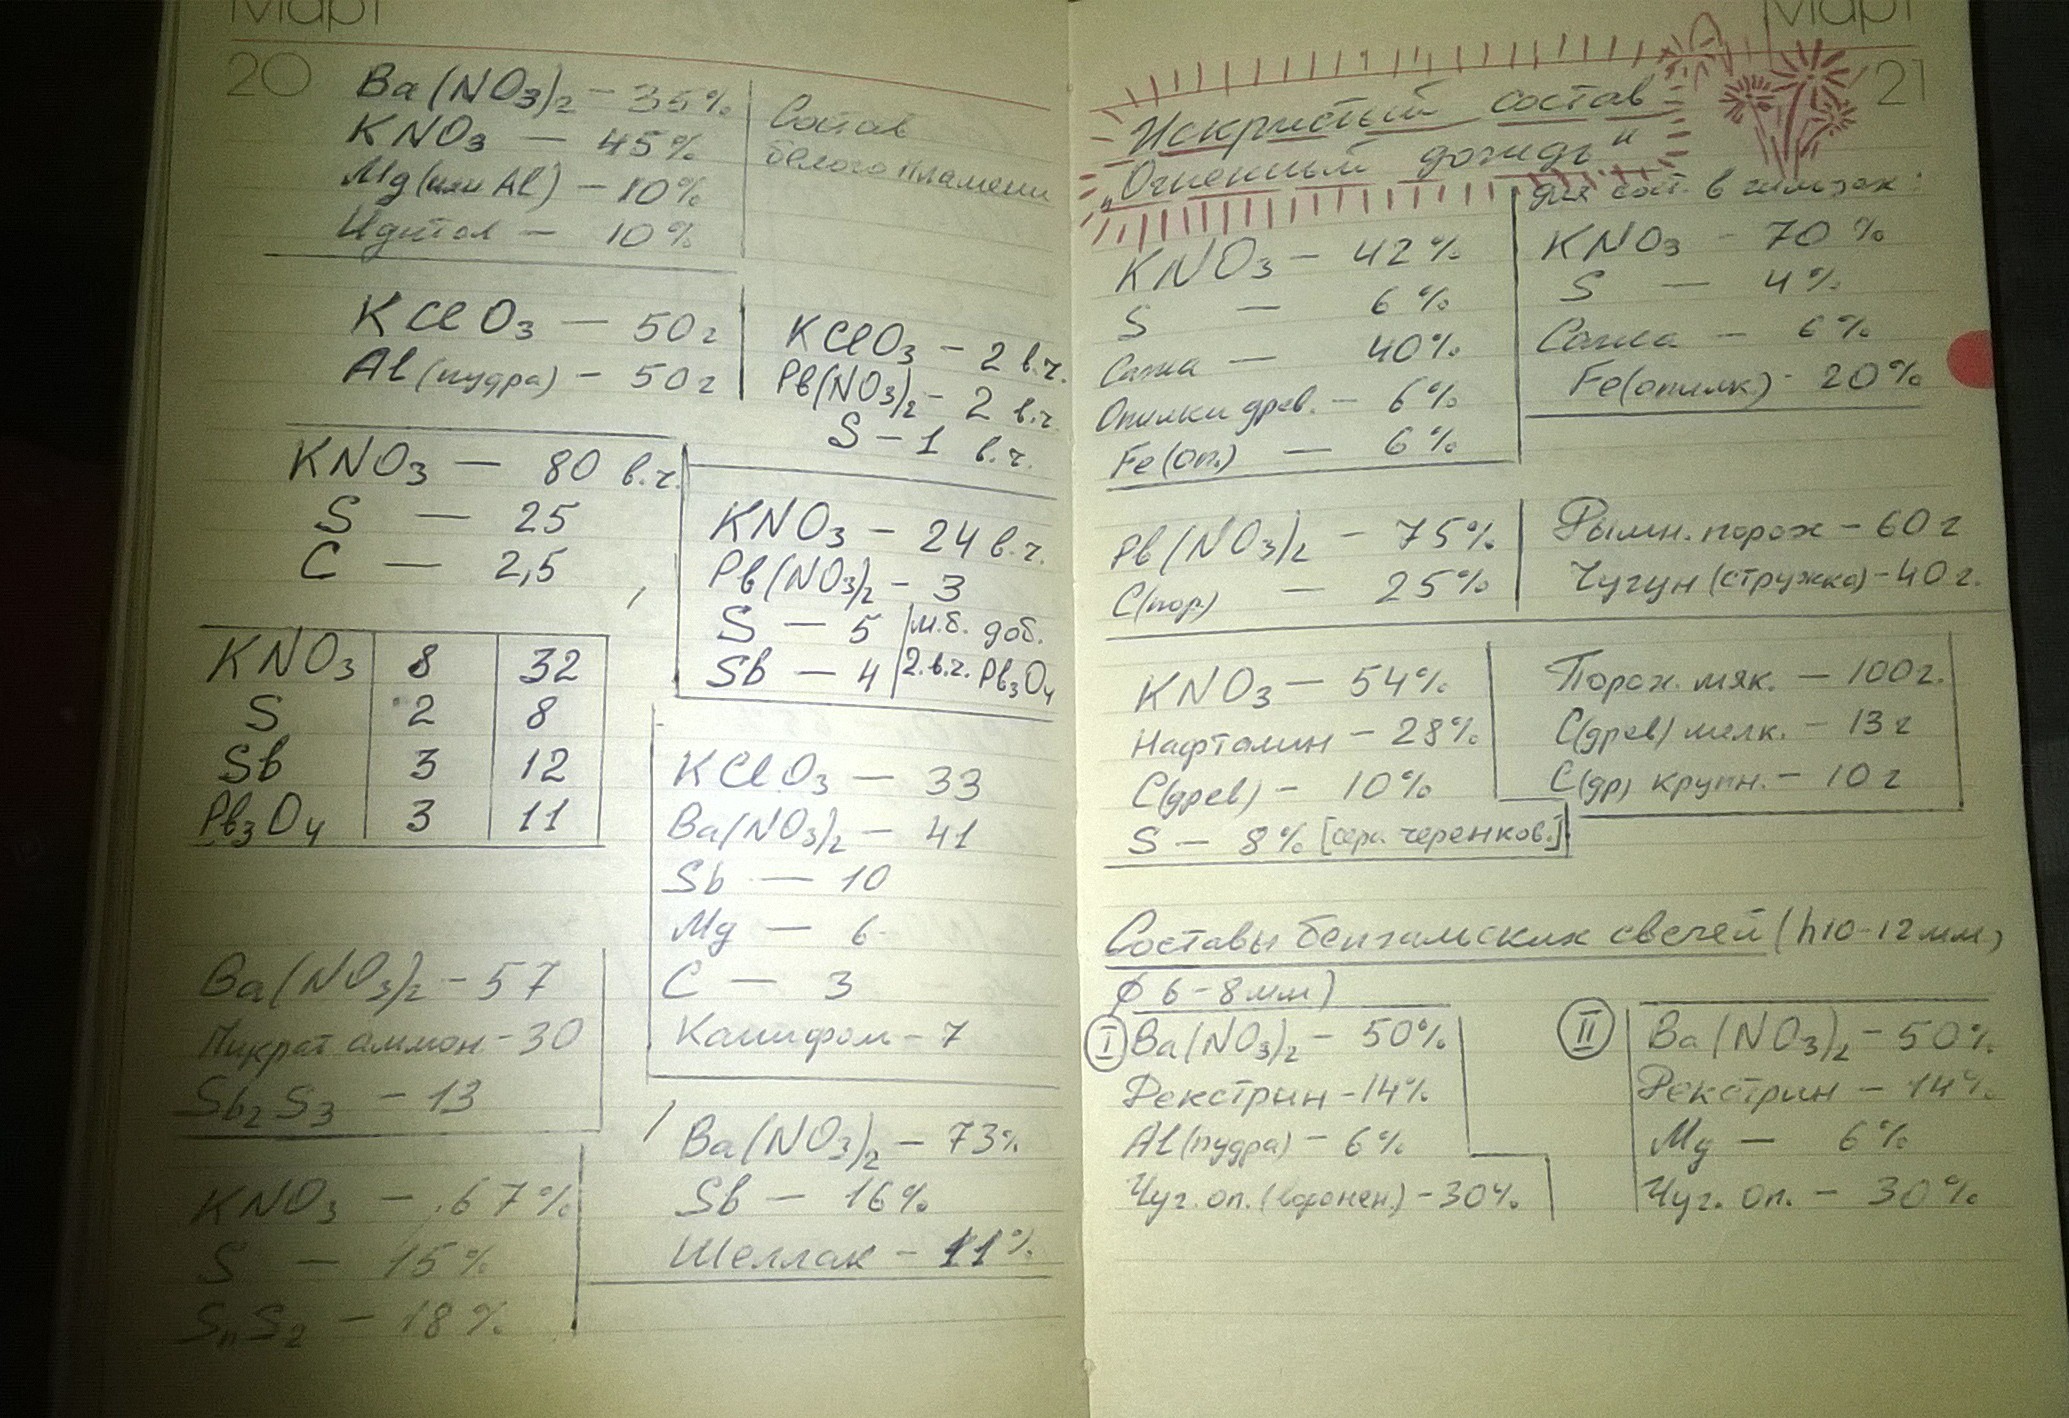 Март
20
Ba(NO₃)₂ – 35%
KNO₃ — 45%
Mg (или Al) – 10%
Идитол – 10%
Состав
белого пламени
KClO₃ — 50 г
Al (пудра) – 50 г
KClO₃ – 2 в.ч.
Pb(NO₃)₂ – 2 в.ч.
S – 1 в.ч.
KNO₃ — 80 в.ч.
S — 25
C — 2,5
KNO₃ – 24 в.ч.
Pb(NO₃)₂ – 3
S — 5
Sb — 4
м.б. доб.
2 в.ч. Pb₃O₄
KNO₃ 8 32
S 2 8
Sb 3 12
Pb₃O₄ 3 11
KClO₃ — 33
Ba(NO₃)₂ – 41
Sb — 10
Mg — 6
C — 3
Канифол – 7
Ba(NO₃)₂ – 57
Пикрат аммон – 30
Sb₂S₃ – 13
Ba(NO₃)₂ – 73%
Sb — 16%
Шеллак – 11%
KNO₃ – 67%
S — 15%
SnS₂ – 18%
Март
21
Искристый состав
„Огненный дождь“
KNO₃ – 42%
S — 6%
Сажа — 40%
Опилки древ. – 6%
Fe (оп.) — 6%
в гильзах:
KNO₃ – 70%
S — 4%
Сажа – 6%
Fe (опилк) – 20%
Pb(NO₃)₂ – 75%
C (пор.) — 25%
Дымн. порох – 60 г
Чугун (стружка) – 40 г.
KNO₃ – 54%
Нафталин – 28%
C (древ) – 10%
S – 8% [сера черенков.]
Порох. мяк. – 100 г.
C (древ) мелк. – 13 г
C (др) крупн. – 10 г
Составы бенгальских свечей (h 10-12 мм,
ϕ 6-8 мм)
I
Ba(NO₃)₂ – 50%
Декстрин – 14%
Al (пудра) – 6%
Чуг. оп. (воронен.) – 30%
II
Ba(NO₃)₂ – 50%
Декстрин – 14%
Mg — 6%
Чуг. оп. – 30%